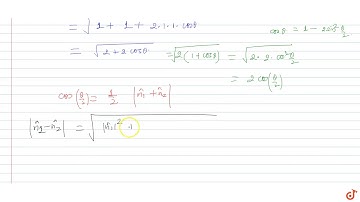 = √1 + 1 + 2·1·1·cosθ
cosθ = 1 - 2sin²θ/2
= √2+2cosθ = √2(1+cosθ) = √2·2·cos²θ/2
= 2cos(θ/2)
cos(θ/2) = 1/2 |n̂₁ + n̂₂|
|n̂1 - n̂2| = √|n̂₁|² +
doubtnut